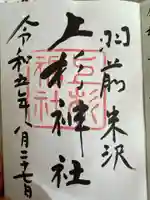 羽前米沢
上杉神社
令和五年八月二十七日